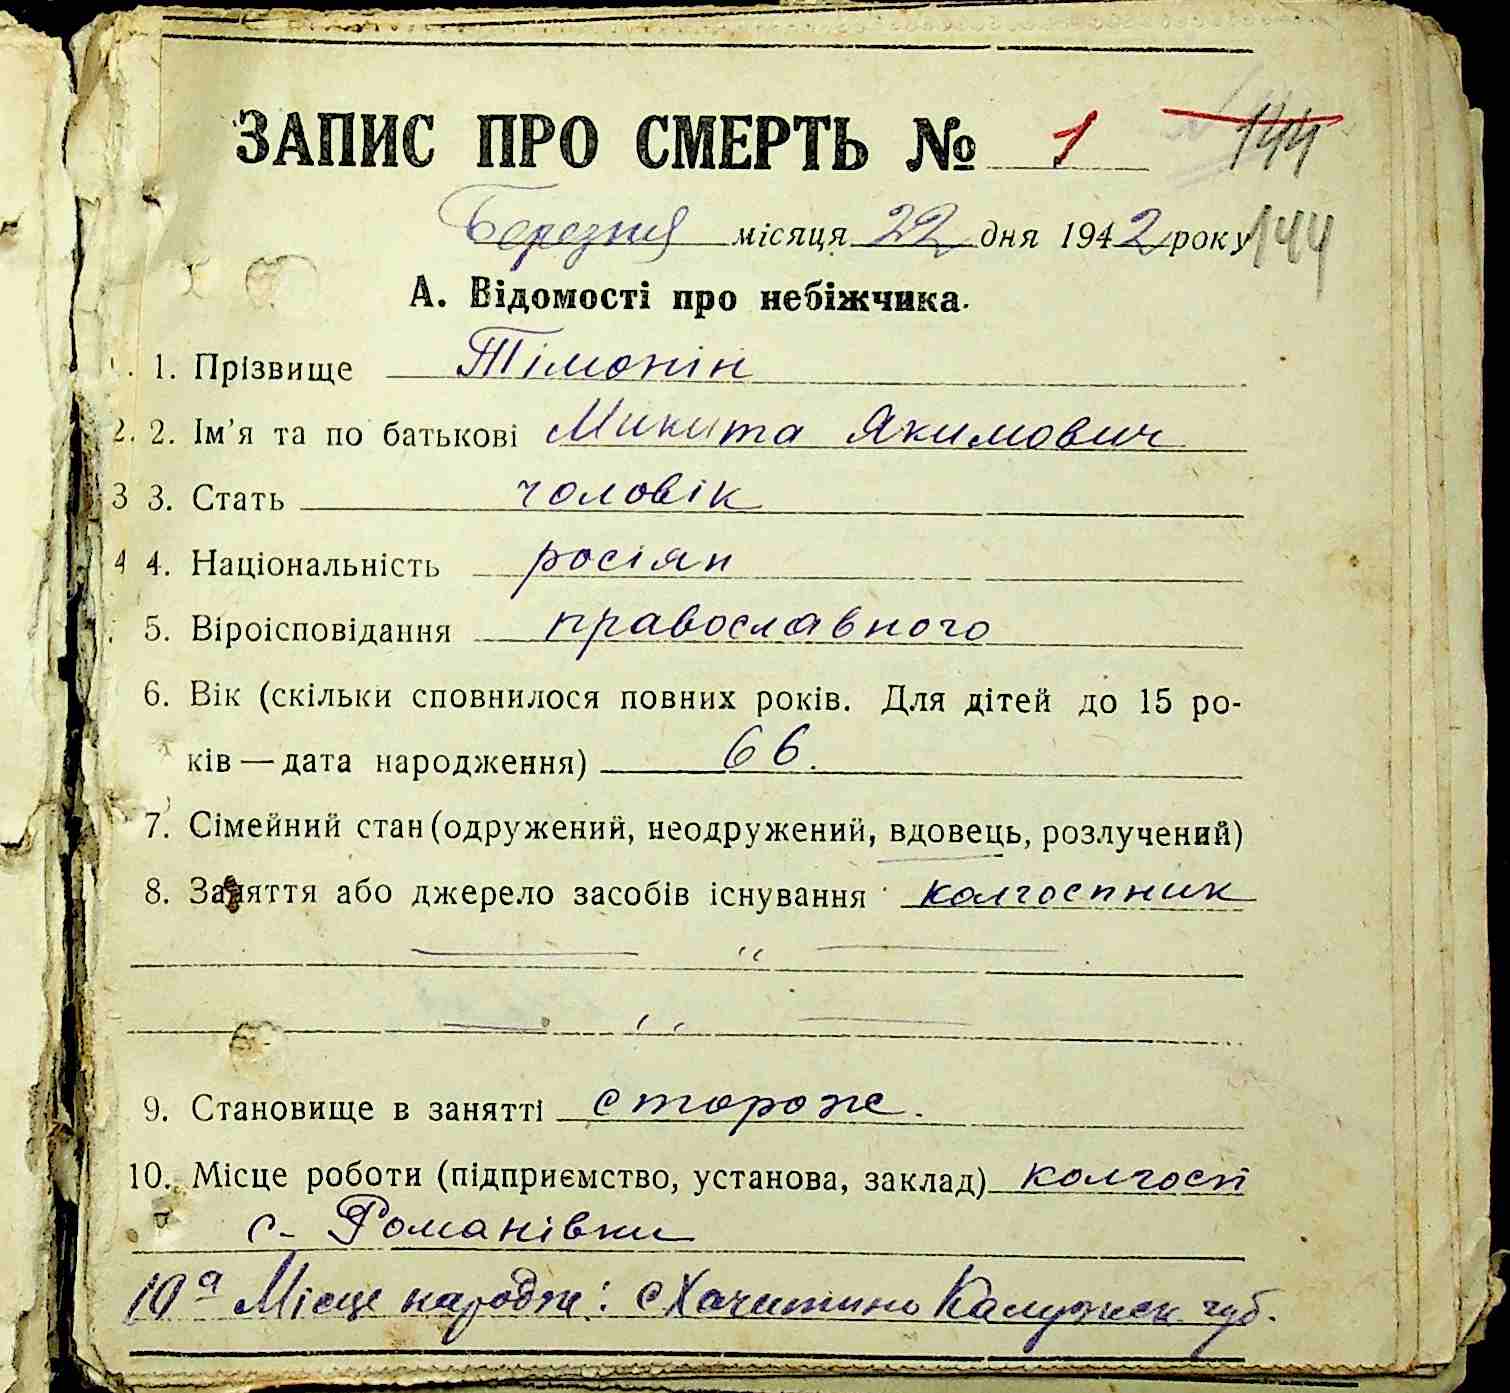 ЗАПИС ПРО СМЕРТЬ № 1 144
Березня місяця 22 дня 1942 року 144
А. Відомості про небіжчика.
1. Прізвище Тімонін
2. 2. Ім'я та по батькові Микита Якимович
3 3. Стать чоловік
4 4. Національність росіян
5. Віроісповідання православного
6. Вік (скільки сповнилося повних років. Для дітей до 15 ро-
ків — дата народження) 66.
7. Сімейний стан (одружений, неодружений, вдовець, розлучений)
8. Заняття або джерело засобів існування колгоспник
— " —
— " —
9. Становище в занятті сторож.
10. Місце роботи (підприємство, установа, заклад) колгосп
с. Романівки
10а Місце народж: с Калужск. губ.